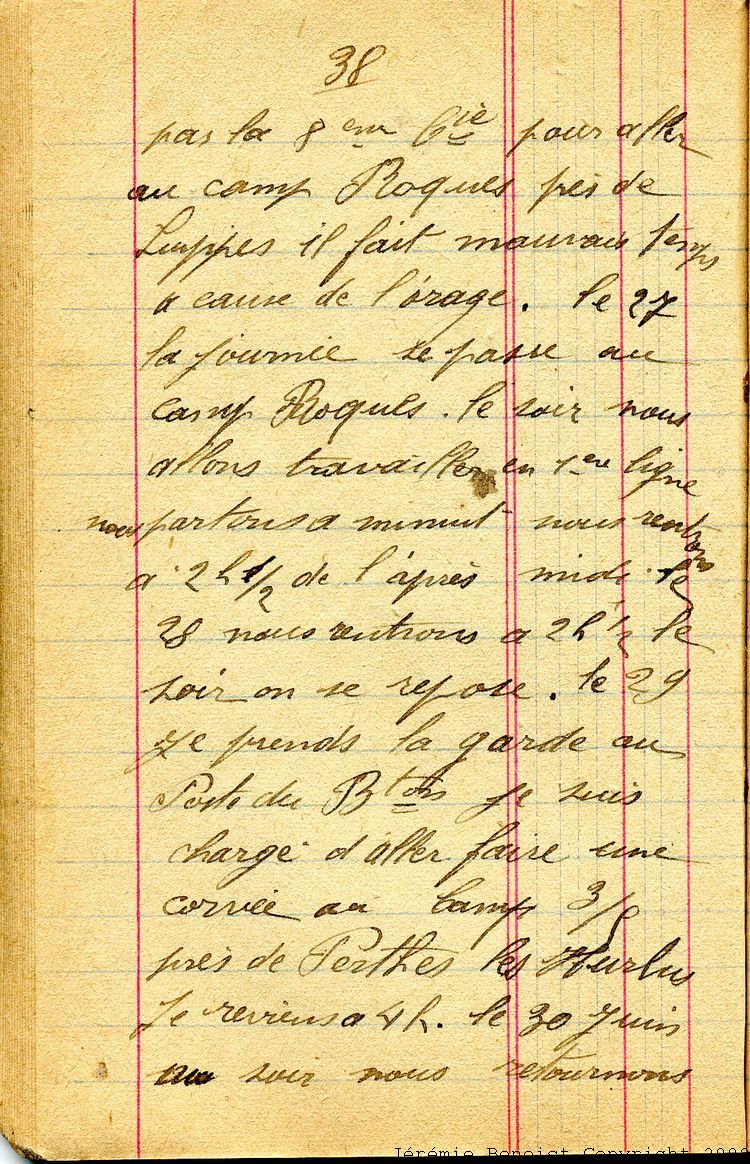 38
pas la 8 eme Cie pour aller
au camp Roques près de
Suippes il fait mauvais temps
a cause de l'orage. le 27
la journée se passe au
camp Roques. le soir nous
allons travailler en 1ere ligne
nous partons a minuit nous rentrons
a 2h 1/2 de l'après midi. le
28 nous rentrons a 2h 1/2 le
soir on se repose. le 29
je prends la garde au
Poste du Bton je suis
chargé d aller faire une
corvée au Camp 3/5
près de Perthes les Hurlus
Je reviens a 4h. le 30 Juin
au soir nous retournons
Jérémie Benoist Copyright